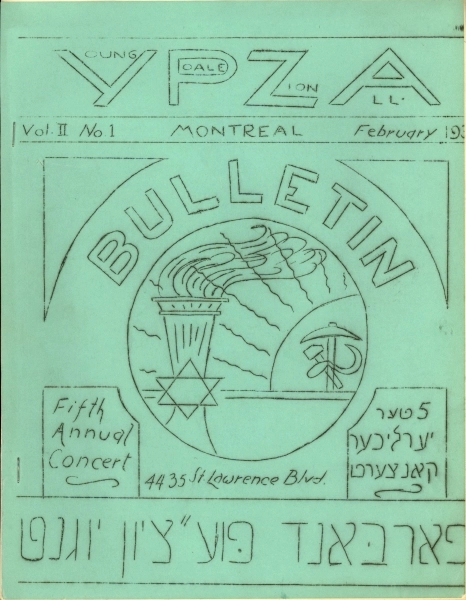 YOUNG POALE ZION ALL.
Vol. II No 1 MONTREAL February 193
BULLETIN
Fifth
Annual
Concert
5 טער
יערליכער
קאנצערט
4435 St Lawrence Blvd.
פארבאנד פּוע"ציון יוגנט